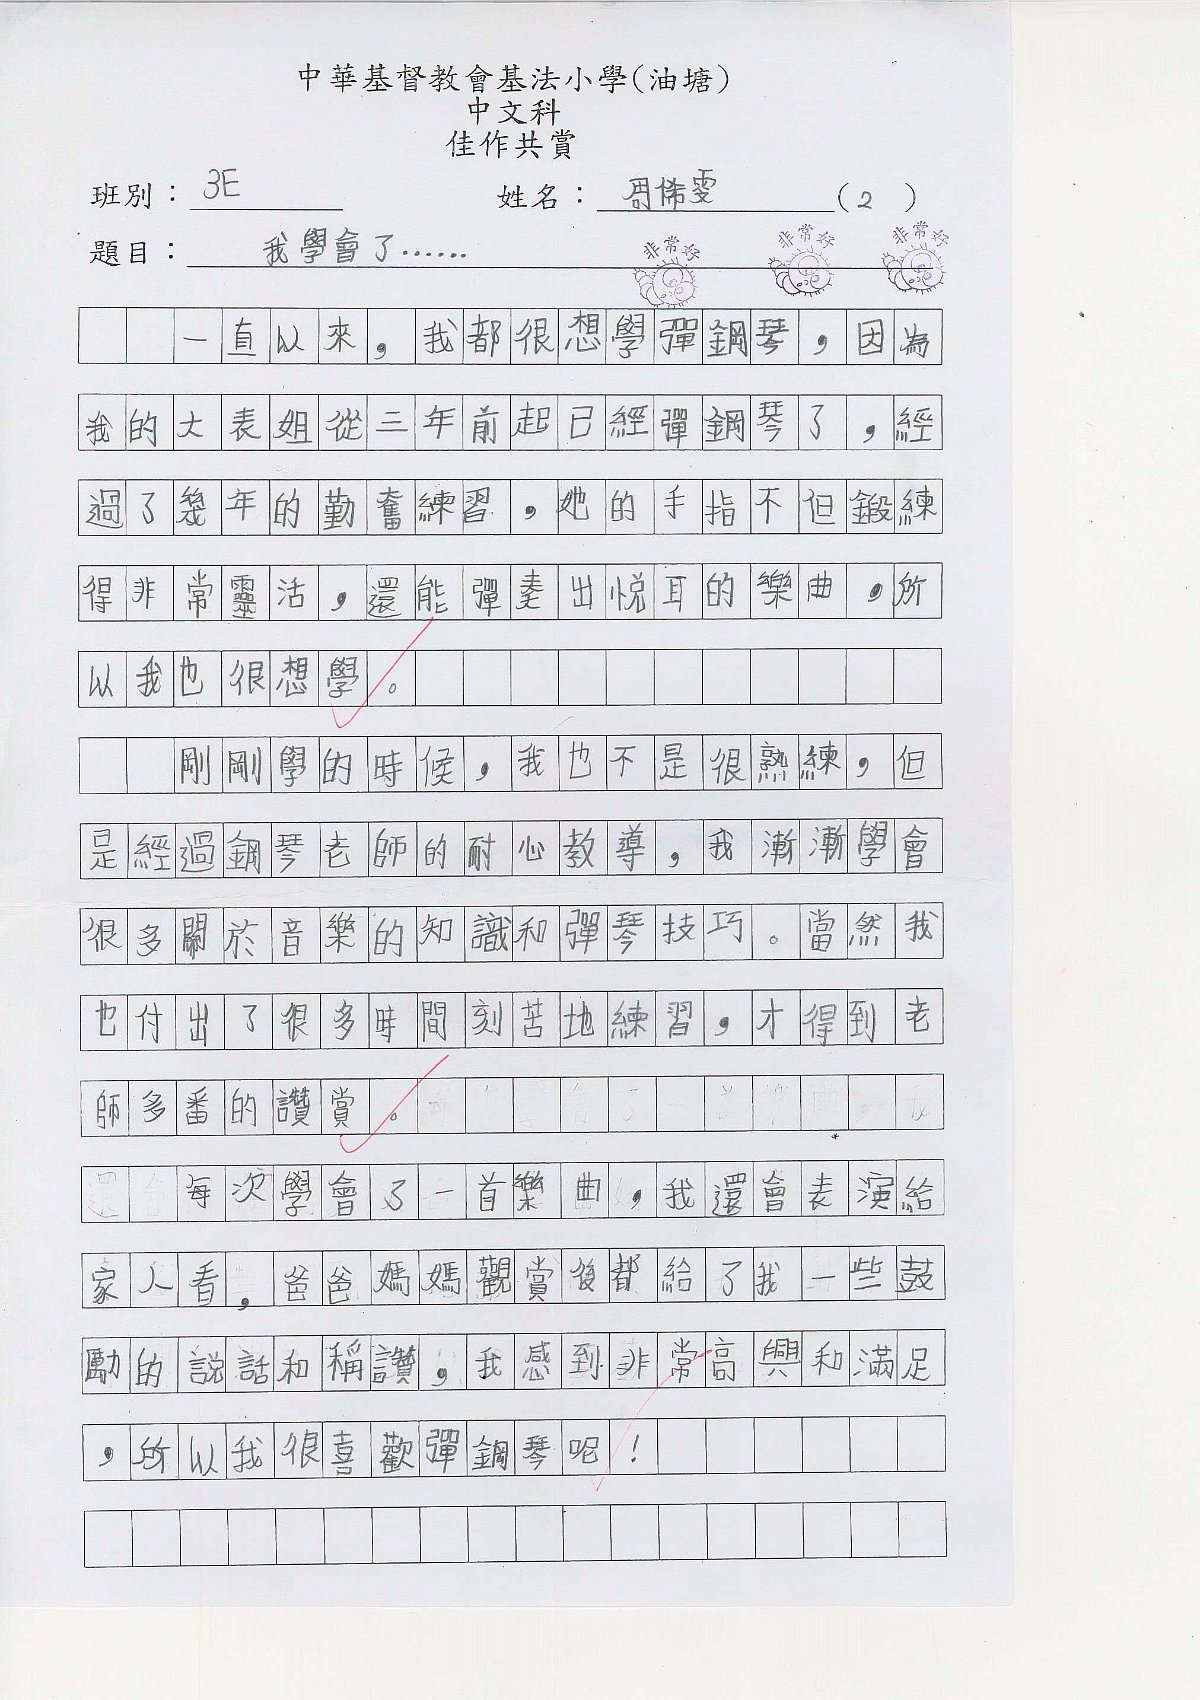 中華基督教會基法小學(油塘)
中文科
佳作共賞
班別：3E 姓名：周俙雯(2)
題目：我學會了……
非常好 非常好 非常好
一直以來，我都很想學彈鋼琴，因為
我的大表姐從三年前起已經彈鋼琴了，經
過了幾年的勤奮練習，她的手指不但鍛練
得非常靈活，還能彈奏出悅耳的樂曲，所
以我也很想學。
剛剛學的時候，我也不是很熟練，但
是經過鋼琴老師的耐心教導，我漸漸學會
很多關於音樂的知識和彈琴技巧。當然我
也付出了很多時間刻苦地練習，才得到老
師多番的讚賞。
每次學會了一首樂曲，我還會表演給
家人看，爸爸媽媽觀賞後都給了我一些鼓
勵的說話和稱讚，我感到非常高興和滿足
，所以我很喜歡彈鋼琴呢！